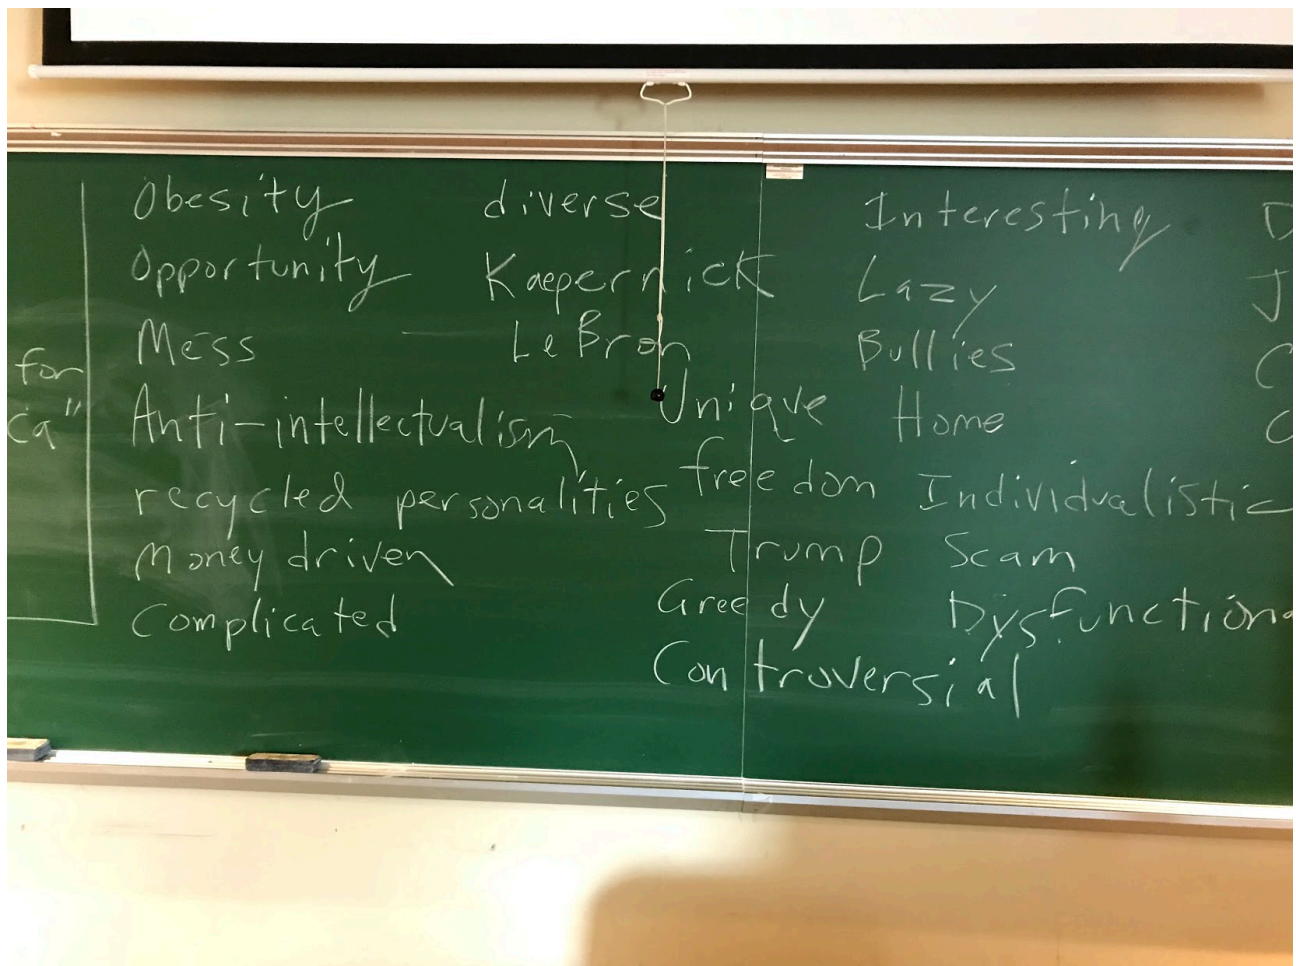 for
ca"
Obesity
Opportunity
Mess
Anti-intellectualism
recycled personalities
Money driven
Complicated
diverse
Kaepernick
LeBron
Unique
freedom
Trump
Greedy
Controversial
Interesting
Lazy
Bullies
Home
Individualistic
Scam
Dysfunctiona
D
J
C